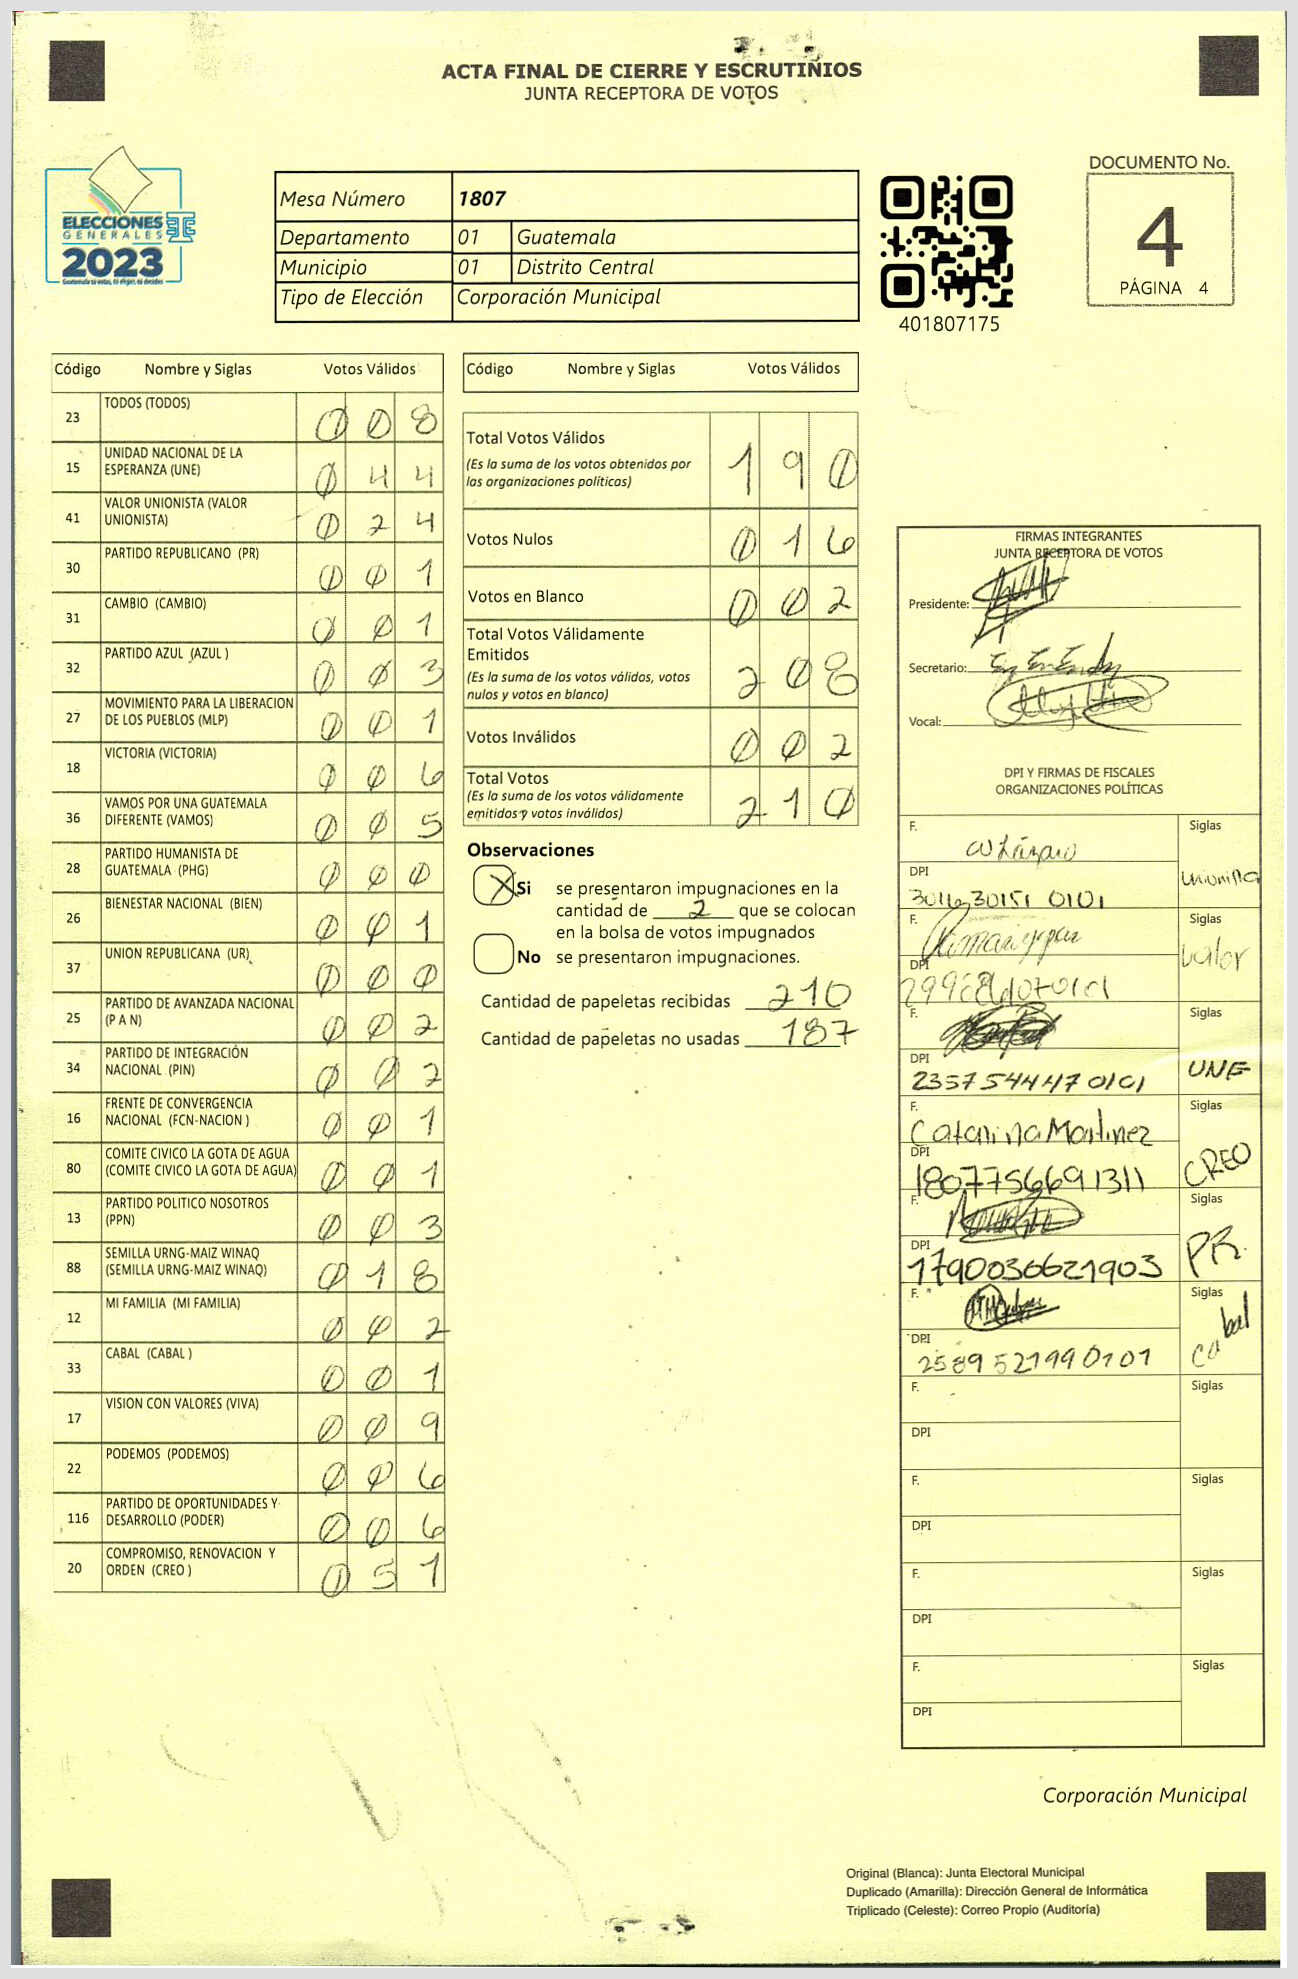 ACTA FINAL DE CIERRE Y ESCRUTINIOS
JUNTA RECEPTORA DE VOTOS
ELECCIONES
GENERALES
2023
Guatemala tú votas, tú eliges, tú decides
Mesa Número 1807
Departamento 01 Guatemala
Municipio 01 Distrito Central
Tipo de Elección Corporación Municipal
401807175
DOCUMENTO No.
4
PÁGINA 4
Código Nombre y Siglas Votos Válidos
23 TODOS (TODOS) 0 0 8
15 UNIDAD NACIONAL DE LA
ESPERANZA (UNE) 0 4 4
41 VALOR UNIONISTA (VALOR
UNIONISTA) 0 2 4
30 PARTIDO REPUBLICANO (PR) 0 0 1
31 CAMBIO (CAMBIO) 0 0 1
32 PARTIDO AZUL (AZUL ) 0 0 3
27 MOVIMIENTO PARA LA LIBERACION
DE LOS PUEBLOS (MLP) 0 0 1
18 VICTORIA (VICTORIA) 0 0 6
36 VAMOS POR UNA GUATEMALA
DIFERENTE (VAMOS) 0 0 5
28 PARTIDO HUMANISTA DE
GUATEMALA (PHG) 0 0 0
26 BIENESTAR NACIONAL (BIEN) 0 0 1
37 UNION REPUBLICANA (UR) 0 0 0
25 PARTIDO DE AVANZADA NACIONAL
(P A N) 0 0 2
34 PARTIDO DE INTEGRACIÓN
NACIONAL (PIN) 0 0 2
16 FRENTE DE CONVERGENCIA
NACIONAL (FCN-NACION ) 0 0 1
80 COMITE CIVICO LA GOTA DE AGUA
(COMITE CIVICO LA GOTA DE AGUA) 0 0 1
13 PARTIDO POLITICO NOSOTROS
(PPN) 0 0 3
88 SEMILLA URNG-MAIZ WINAQ
(SEMILLA URNG-MAIZ WINAQ) 0 1 8
12 MI FAMILIA (MI FAMILIA) 0 0 2
33 CABAL (CABAL ) 0 0 1
17 VISION CON VALORES (VIVA) 0 0 9
22 PODEMOS (PODEMOS) 0 0 6
116 PARTIDO DE OPORTUNIDADES Y
DESARROLLO (PODER) 0 0 6
20 COMPROMISO, RENOVACION Y
ORDEN (CREO ) 0 5 1
Código Nombre y Siglas Votos Válidos
Total Votos Válidos 1 9 0
(Es la suma de los votos obtenidos por
las organizaciones políticas)
Votos Nulos 0 1 6
Votos en Blanco 0 0 2
Total Votos Válidamente
Emitidos 2 0 8
(Es la suma de los votos válidos, votos
nulos y votos en blanco)
Votos Inválidos 0 0 2
Total Votos 2 1 0
(Es la suma de los votos válidamente
emitidos y votos inválidos)
Observaciones
X Si se presentaron impugnaciones en la
cantidad de 2 que se colocan
en la bolsa de votos impugnados
No se presentaron impugnaciones.
Cantidad de papeletas recibidas 210
Cantidad de papeletas no usadas 187
FIRMAS INTEGRANTES
JUNTA RECEPTORA DE VOTOS
Presidente:
Secretario:
Vocal:
DPI Y FIRMAS DE FISCALES
ORGANIZACIONES POLÍTICAS
F. Siglas
DPI Unionista
F. Siglas
DPI Valor
F. Siglas
DPI UNE
2357544470101
F. Siglas
Catarina Martinez
DPI CREO
1807756691311
F. Siglas
DPI PR.
1790036621903
F. Siglas
DPI Cabal
2589521990101
F. Siglas
DPI
F. Siglas
DPI
F. Siglas
DPI
F. Siglas
DPI
Corporación Municipal
Original (Blanca): Junta Electoral Municipal
Duplicado (Amarilla): Dirección General de Informática
Triplicado (Celeste): Correo Propio (Auditoría)